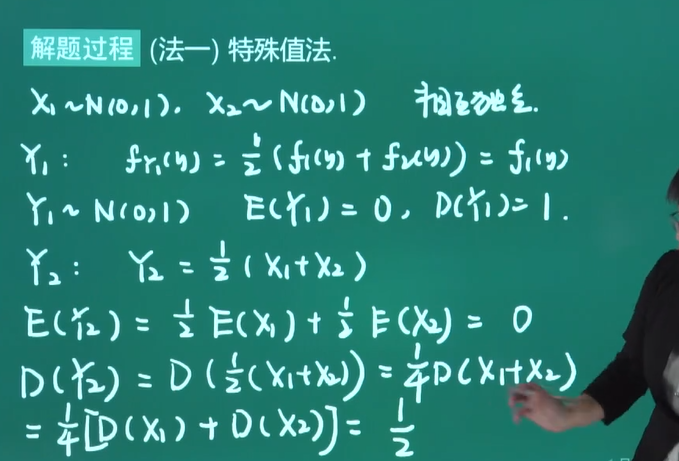 解题过程 (法一) 特殊值法.
X₁~N(0,1). X₂~N(0,1) 相互独立.
Y₁: f_{Y₁}(y) = 1/2 (f₁(y) + f₂(y)) = f₁(y)
Y₁~N(0,1) E(Y₁) = 0, D(Y₁) = 1.
Y₂: Y₂ = 1/2 (X₁+X₂)
E(Y₂) = 1/2 E(X₁) + 1/2 E(X₂) = 0
D(Y₂) = D(1/2(X₁+X₂)) = 1/4 D(X₁+X₂)
= 1/4[D(X₁) + D(X₂)] = 1/2